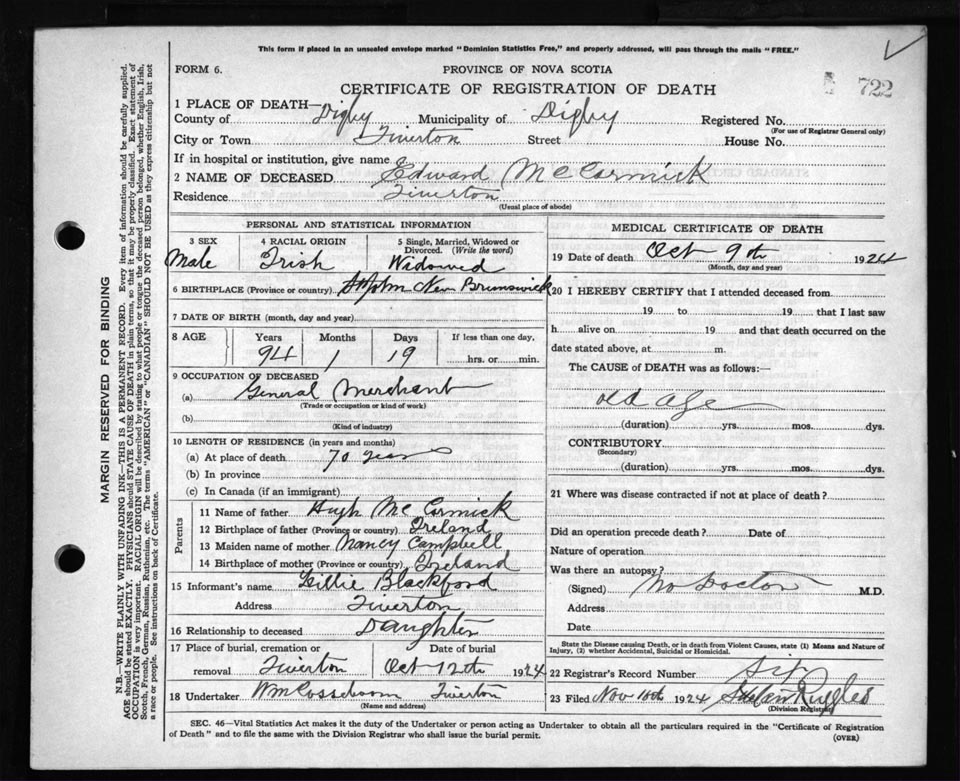 This form if placed in an unsealed envelope marked "Dominion Statistics Free," and properly addressed, will pass through the mails "FREE."
FORM 6.
PROVINCE OF NOVA SCOTIA
722
CERTIFICATE OF REGISTRATION OF DEATH
1 PLACE OF DEATH—
County of Digby Municipality of Digby Registered No.
(For use of Registrar General only)
City or Town Tiverton Street House No.
If in hospital or institution, give name
2 NAME OF DECEASED Edward McCormick
Residence Tiverton
(Usual place of abode)
PERSONAL AND STATISTICAL INFORMATION
3 SEX 4 RACIAL ORIGIN 5 Single, Married, Widowed or Divorced. (Write the word)
Male Irish Widowed
6 BIRTHPLACE (Province or country) St John New Brunswick
7 DATE OF BIRTH (month, day and year)
8 AGE Years Months Days If less than one day,
94 1 19 hrs. or min.
9 OCCUPATION OF DECEASED
(a) General Merchant
(Trade or occupation or kind of work)
(b)
(Kind of industry)
10 LENGTH OF RESIDENCE (in years and months)
(a) At place of death 70 years
(b) In province
(c) In Canada (if an immigrant)
Parents
11 Name of father Hugh McCormick
12 Birthplace of father (Province or country) Ireland
13 Maiden name of mother Nancy Campbell
14 Birthplace of mother (Province or country) Ireland
15 Informant's name Lillie Blackford
Address Tiverton
16 Relationship to deceased Daughter
17 Place of burial, cremation or removal Tiverton Date of burial Oct 12th 1924
18 Undertaker Wm Cossaboom Tiverton
(Name and address)
MEDICAL CERTIFICATE OF DEATH
19 Date of death Oct 9th 1924
(Month, day and year)
20 I HEREBY CERTIFY that I attended deceased from
19 to 19 that I last saw
h alive on 19 and that death occurred on the
date stated above, at m.
The CAUSE of DEATH was as follows:—
old age
(duration) yrs. mos. dys.
CONTRIBUTORY
(Secondary)
(duration) yrs. mos. dys.
21 Where was disease contracted if not at place of death?
Did an operation precede death? Date of
Nature of operation
Was there an autopsy?
(Signed) No Doctor M.D.
Address
Date
State the Disease causing Death, or in death from Violent Causes, state (1) Means and Nature of
Injury, (2) whether Accidental, Suicidal or Homicidal.
22 Registrar's Record Number
23 Filed Nov 10th 1924 Ruggles
(Division Registrar)
SEC. 46—Vital Statistics Act makes it the duty of the Undertaker or person acting as Undertaker to obtain all the particulars required in the "Certificate of Registration
of Death" and to file the same with the Division Registrar who shall issue the burial permit.
(OVER)
MARGIN RESERVED FOR BINDING
N.B.—WRITE PLAINLY WITH UNFADING INK—THIS IS A PERMANENT RECORD. Every item of information should be carefully supplied.
AGE should be stated EXACTLY. PHYSICIANS should STATE CAUSE OF DEATH in plain terms, so that it may be properly classified. Exact statement of
OCCUPATION is very important. RACIAL ORIGIN will be described by stating to what people or tongue the deceased person belonged, whether English, Irish,
Scotch, French, German, Russian, Ruthenian, etc. The terms "AMERICAN" or "CANADIAN" SHOULD NOT BE USED as they express citizenship but not
a race or people. See instructions on back of Certificate.